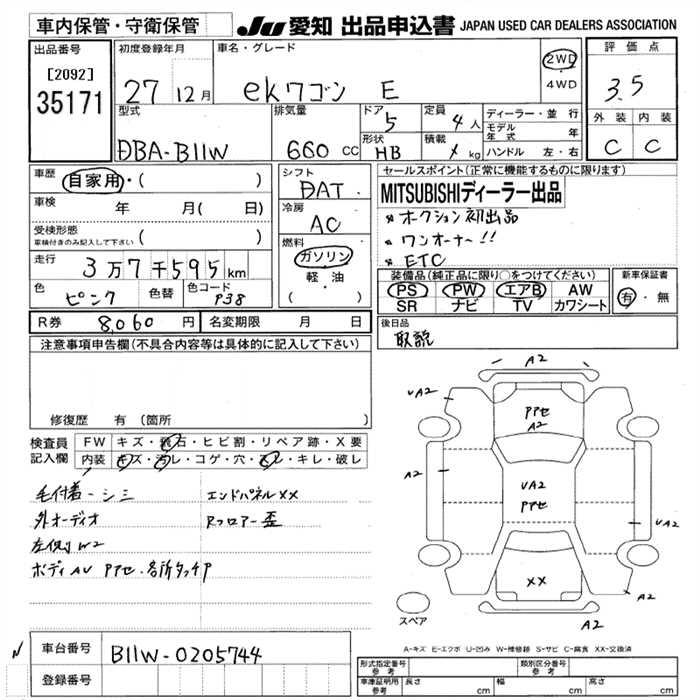 車内保管・守衛保管
JU 愛知 出品申込書 JAPAN USED CAR DEALERS ASSOCIATION
出品番号
[2092]
35171
初度登録年月
27 12月
車名・グレード
ekワゴン E
2WD
・
4WD
評価点
3.5
外装 内装
C C
型式
DBA-B11W
排気量
660 cc
ドア
5
形状
HB
定員
4人
積載
kg
ディーラー・並行
モデル年式 年
ハンドル 左・右
車歴
自家用・( )
車検 年 月( 日)
受検形態
車検付きのみ記入して下さい ( )
走行
3万7千595km
色
ピンク
色替
色コード
P38
シフト
DAT
冷房
AC
燃料
ガソリン
・
軽・油
( )
セールスポイント(正常に機能するものに限ります)
MITSUBISHIディーラー出品
※オークション初出品
※ワンオーナー!!
※ETC
装備品(純正品に限り○をつけてください)
PS PW エアB AW
SR ナビ TV カワシート
新車保証書
有・無
R券 8,060円
名変期限 月 日
後日品
取説
注意事項申告欄(不具合内容等は具体的に記入して下さい)
修復歴 有(箇所 )
検査員
記入欄
FW キズ・飛石・ヒビ割・リペア跡・X要
内装 キズ・汚レ・コゲ・穴・スレ・キレ・破レ
毛付着-シミ
外オーディオ
左側W2
ボディAU PPセ・各所タッチP
エンドパネルXX
Rフロアー歪
A2
UA2
PPセ
A2
A2
UA2
PPセ
UA2
XX
A2
A2
スペア
A-キズ E-エクボ U-凹み W-補修跡 S-サビ C-腐食 XX-交換済
車台番号 B11W-0205744
登録番号
形式指定番号
参考
類別区分番号
参考
車庫証明用
参考
長さ cm 幅 cm 高さ cm